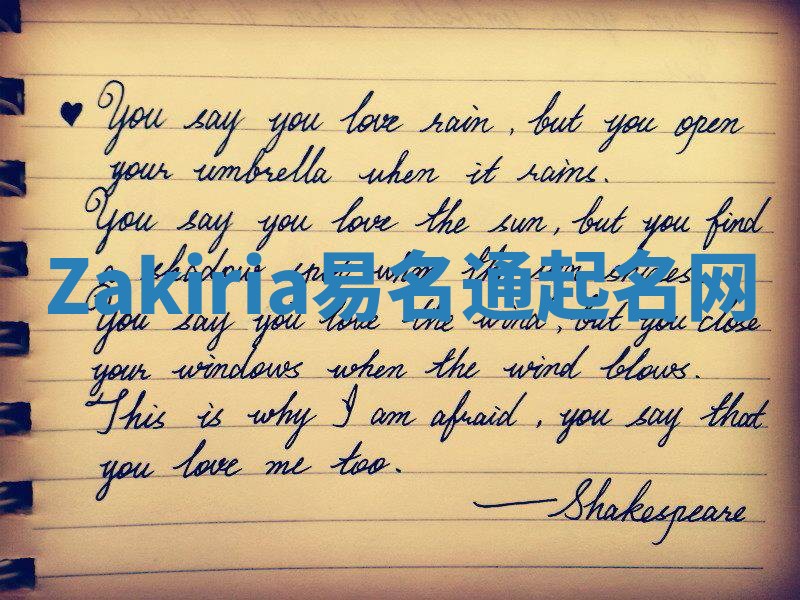 ♥ You say you love rain, but you open
your umbrella when it rains.
You say you love the sun, but you find
a shadow spot when the sun shines.
Zakiria易名通起名网
You say you love the wind, but you close
your windows when the wind blows.
This is why I am afraid, you say that
you love me too.
— Shakespeare